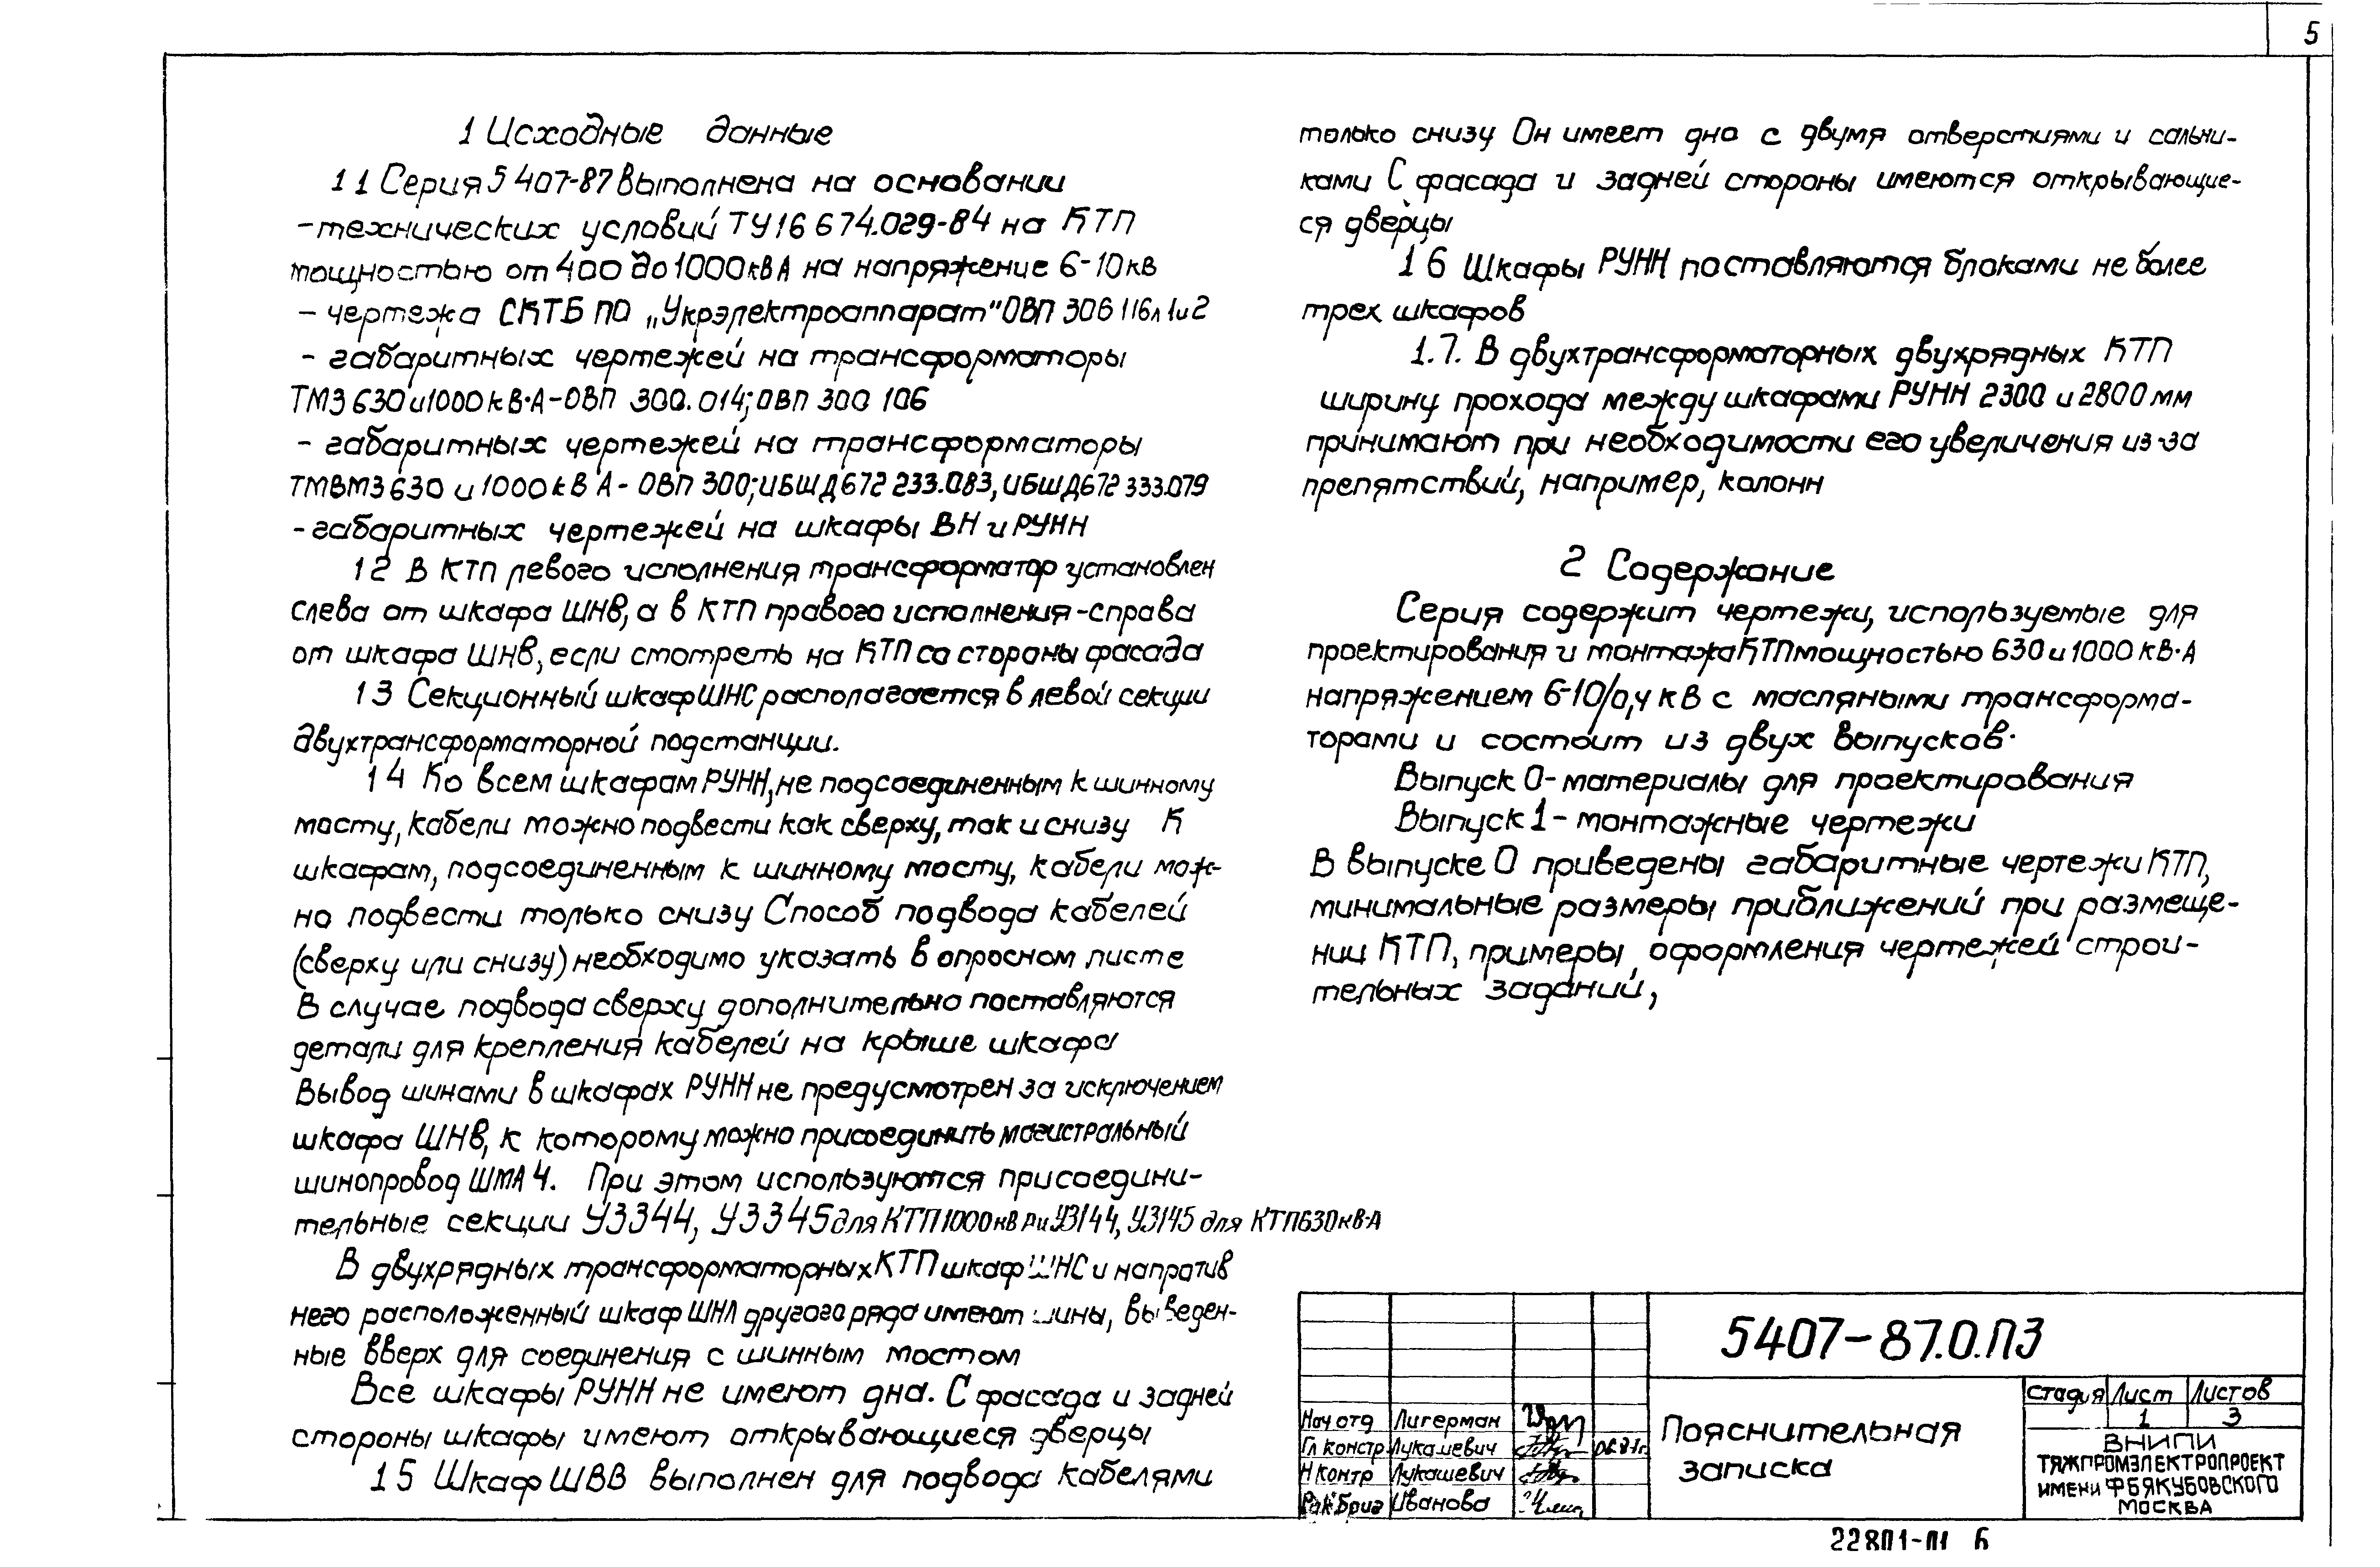 5
1 Исходные данные
1 1 Серия 5 407-87 Выполнена на основании
-технических условий ТУ16 674.029-84 на КТП
мощностью от 400 до 1000 кВ А на напряжение 6-10 кв
- чертежа СКТБ ПО „Укрэлектроаппарат" ОВП 306 116 л 1и2
- габаритных чертежей на трансформаторы
ТМЗ 630 и 1000 кВ·А-ОВП 300.014; ОВП 300 106
- габаритных чертежей на трансформаторы
ТМВМЗ 630 и 1000 кВ А- ОВП 300; ИБШД672 233.083, ИБШД672 333.079
-габаритных чертежей на шкафы ВН и РУНН
1 2 В КТП левого исполнения трансформатор установлен
слева от шкафа ШНВ, а в КТП правого исполнения-справа
от шкафа ШНВ, если смотреть на КТП со стороны фасада
1 3 Секционный шкаф ШНС располагается в левой секции
двухтрансформаторной подстанции.
1 4 Ко всем шкафам РУНН, не подсоединенным к шинному
мосту, кабели можно подвести как сверху, так и снизу К
шкафам, подсоединенным к шинному мосту, кабели мож-
но подвести только снизу Способ подвода кабелей
(сверху или снизу) необходимо указать в опросном листе
В случае подвода сверху дополнительно поставляются
детали для крепления кабелей на крыше шкафа
Вывод шинами в шкафах РУНН не предусмотрен за исключением
шкафа ШНВ, к которому можно присоединить магистральный
шинопровод ШМА 4. При этом используются присоедини-
тельные секции У3344, У3345 для КТП 1000 кВ А и У3144, У3145 для КТП630 кВ·А
В двухрядных трансформаторных КТП шкаф ШНС и напротив
него расположенный шкаф ШНЛ другого ряда имеют шины, выведен-
ные вверх для соединения с шинным мостом
Все шкафы РУНН не имеют дна. С фасада и задней
стороны шкафы имеют открывающиеся дверцы
1 5 Шкаф ШВВ выполнен для подвода кабелями
только снизу Он имеет дно с двумя отверстиями и сальни-
ками С фасада и задней стороны имеются открывающие-
ся дверцы
1 6 Шкафы РУНН поставляются блоками не более
трех шкафов
1.7. В двухтрансформаторных двухрядных КТП
ширину прохода между шкафами РУНН 2300 и 2800 мм
принимают при необходимости его увеличения из-за
препятствий, например, колонн
2 Содержание
Серия содержит чертежи, используемые для
проектирования и монтажа КТП мощностью 630 и 1000 кВ·А
напряжением 6-10/0,4 кВ с масляными трансформа-
торами и состоит из двух выпусков.
Выпуск 0-материалы для проектирования
Выпуск 1-монтажные чертежи
В выпуске 0 приведены габаритные чертежи КТП,
минимальные размеры приближений при размеще-
нии КТП, примеры оформления чертежей строи-
тельных заданий,
5407-87.0.ПЗ
Нач отд Лигерман
Гл констр Лукашевич
Н контр Лукашевич
Рук бриг Иванова
Пояснительная
записка
стадия Лист Листов
1 3
ВНИПИ
ТЯЖПРОМЭЛЕКТРОПРОЕКТ
ИМЕНИ Ф Б ЯКУБОВСКОГО
МОСКВА
22801-01 6